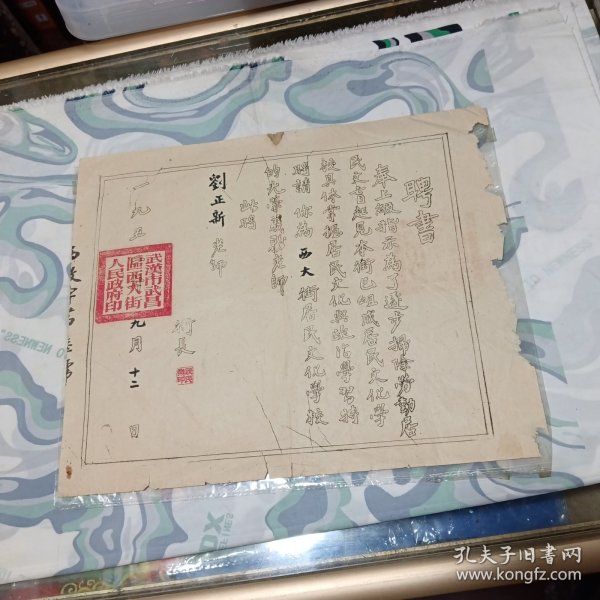 聘書
奉上級指示為了逐步掃除勞動居
民文盲起見本街已組成居民文化學
校具体掌握居民文化與政治學習特
聘請 你為 西大 街居民文化學校
的光榮義職老師
此聘
劉正新 老師
街長
一九五 九月 十二 日
武漢市武昌
區西大街
人民政府印
NEWNESS
孔夫子旧书网
www.kongfz.com